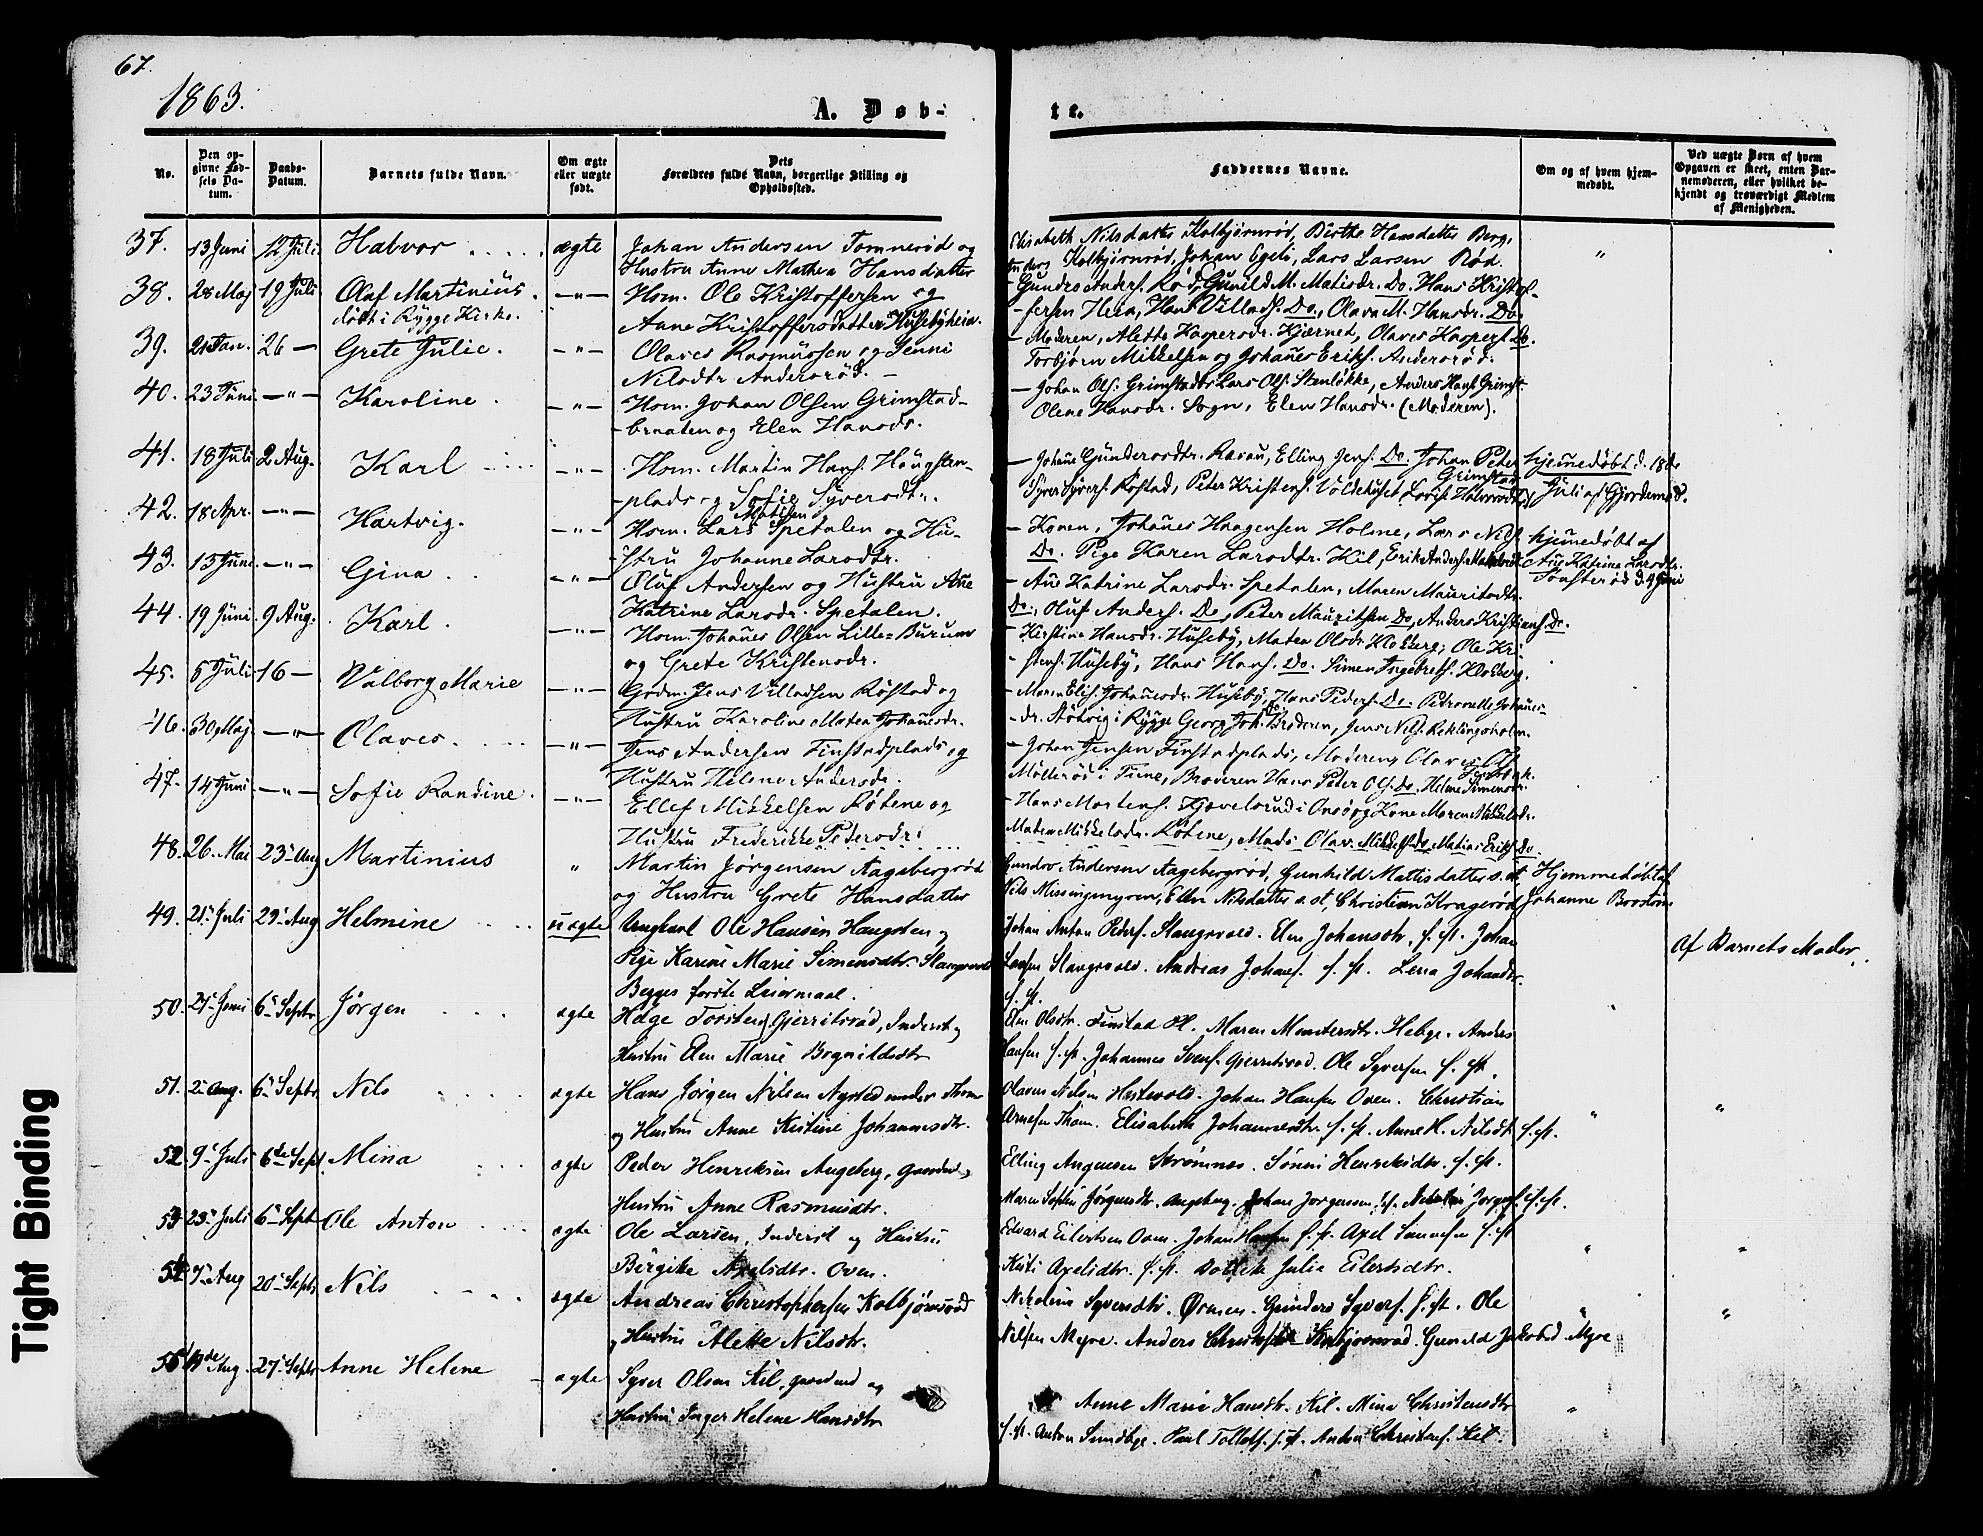 67.
1863.
A. Døb-
te.
No.
Den op-
givne Fød-
sels Da-
tum.
Daabs-
Datum.
Barnets fulde Navn.
Om ægte
eller uægte
født.
Dets
Forældres fulde Navn, borgerlige Stilling og
Opholdssted.
Faddernes Navne.
Om og af hvem hjem-
medøbt.
Ved uægte Børn af hvem
Opgaven er skeet, enten Bar-
nemoderen, eller hvilket be-
kjendt og troværdigt Medlem
af Menigheden.
37. 13 Juni 12 Juli Halvor ægte Johan Andersen Tomnerød og
Hustru Anne Mathea Hansdatter
Elisabeth Nilsdatter Kolbjørnrød, Birthe Hansdatter Berg,
Kolbjørnrød, Johan Egeli, Lars Larsen Rød.
38. 28 Maj 19 Juli Olaf Martinius. —"— Hsm. Ole Kristoffersen og
døbt i Rygge Kirke.
Anne Kristoffersdatter Husebyheia.
Gundro Anders. Rød, Gunild M. Matisdr. Do. Hans Kristof-
fersen Heia, Hans Villads. Do., Olava M. Hansdr. Do.
39. 21 Jan. 26 — Grete Julie. —"— Olaves Rasmussen og Jenni
Nilsdtr Andersrød.
Moderen, Alette Kaspersdr. Kjærnes, Olaves Kaspers. Do.
Torbjørn Mikkelsen og Johanes Eriks. Andersrød.
40. 23 Juni —"— Karoline. —"— Hsm. Johan Olsen Grimstad-
braaten og Elen Hansdr.
Johan Ols. Grimstadbr. Lars Ols. Stenløkke, Anders Hans. Grimst.
Olene Hansdr. Sogn, Elen Hansdr. (Moderen).
41. 18 Juli 2 Aug. Karl —"— Hsm. Martin Hans. Haugsten-
plads og Sofie Syversdtr.
Johane Gundersdtr. Rasau, Elling Jens. Do. Johan Peter
Grimstad
Syver Syvers. Rostad, Peter Kristens. Voldehuset,
hjemmedøbt d. 18de
Juli af Gjordemod.
42. 18 Apr. —"— Hartvig. —"— Hsm. Lars Spetalen og Hu-
Matisen
stru Johanne Larsdtr.
Konen, Johanes Haagensen Holme, Lars Nils.
Do. Pige Karen Larsdtr. Kil,
hjemmedøbt af
Ane Katrine Larsdtr.
43. 13 Juni —"— Gina. —"— Oluf Andersen og Hustru Ane
Katrine Larsdr. Spetalen.
Ane Katrine Larsdr. Spetalen, Maren Mauritsdtr.
Do., Oluf Anders. Do., Peter Mauritsen Do, Anders Kristians. Do.
44. 19 Juni 9 Aug. Karl. —"— Hsm. Johanes Olsen Lille-Burum
og Grete Kristensdr.
Kirstine Hansdr. Huseby, Matea Olsdr. Klokberg, Ole Kri-
stens. Huseby, Hans Hans. Do. Simen Ingebrets. Klokberg.
45. 5 Juli 16 — Valborg Marie —"— Grdm. Jens Villadsen Rostad og
Hustru Karoline Matea Johanesdr.
Maren Elis. Johanesdr. Huseby, Hans Peders. Do. Petronelle Johanes-
dr. Støtvig i Rygge Georg Joh. Broderen, Jens Nils.
46. 30 Maj —"— Olaves. —"— Jens Andersen Finstadplads og
Hustru Helene Andersdr.
Johan Jensen Finstadplads, Moderen, Olaves
Broderen Hans Peter Ols. Do. Helene Simensdr.
47. 14 Juni —"— Sofie Randine. —"— Ellef Mikkelsen Røtene og
Hustru Frederikke Pedersdr.
Hans Mortens. i Onsø og Kone Maren Mikkelsdr.
Maren Mikkelsdr. Røtene, Mads Olav. Mikkels. Do. Matias Eriks. Do.
48. 26. Mai 23de Aug Martinius " Martin Jørgensen Aagebergrød
og Hustru Grete Hansdatter
Gundro Andersen Aagebergrød, Gunhild Mattisdatter s. st,
Nils Missingmyren, Ellen Nilsdatter s. st, Christian Kragerød
Hjemmedøbt af
Johanne
49. 21 Juli 29 Aug Helmine uægte Ungkarl Ole Hansen Haugsten og
Pige Karine Marie Simensdtr. Slangsvold
Begges første Leiermaal.
Johan Anton Peders. Slangsvold. Elen Johansdtr. s. st. Johan
Larsen Slangsvold. Andreas Johans. s. st. Lena Johansdr.
s. st.
Af Barnets Moder.
50. 21 Juni 6 Septr Jørgen ægte Hage Torstens. Gjerritsrød, Inderst og
Hustru Elen Marie
Elen Olsdtr. Finstad Hl. Maren Montersdtr. Helge. Anders
Hansen s. st. Johannes Svens. Gjerretsrød. Ole Syversen s. st.
51. 2 Aug. 6 Septr. Nils ægte Hans Jørgen Nilsen Nysted under Thom
og Hustru Anne Kistine Johannesdtr.
Olaves Nilsen Hestevold. Johan Hansen Oven. Christian
Arnesen Thom. Elisabeth Johannesdtr s. st. Anne H. Nilsdtr s. st.
52. 9 Juli 6te Sept. Mina ægte Peder Henriksen Augeberg, Gaardmd og
Hustru Anne Rasmusdtr.
Elling Strømnes. Sønni Henriksdtr. s. st.
Maren Sophie Jørgensdtr. Augeberg. Johan Jørgensen s. st. Jørgens. s. st.
53 23 Juli 6 Sept Ole Anton ægte Ole Larsen, Inderst og Hustru
Birgithe Axelsdtr. Oven.
Edvard Eilertsen Oven. Johan Hansen s. st. Axel s. st
Kisti Axelsdtr. s. st. Julia Eilertsdtr.
54 Aug 20 Septr Nils ægte Andreas Christophersen Kolbjørnsrød
og Hustru Alette Nilsdtr.
Nikoline Syversdtr. Ørmen. Gunders Syvers. s. st. Ole
Nilsen Myre. Anders Kolbjørnsrød. Gunild Jakobsd. Myre
55 19de Aug. 27 Septr Anne Helene ægte Syver Olsen Kil, gaardmd og
Hustru Inger Helene Hansdtr
Anne Marie Hansdtr. Kil. Mina Christensdtr
s. st. Anton Sundbye. Paul Tollefs. s. st. Anton Christens. Kil.
Tight Binding